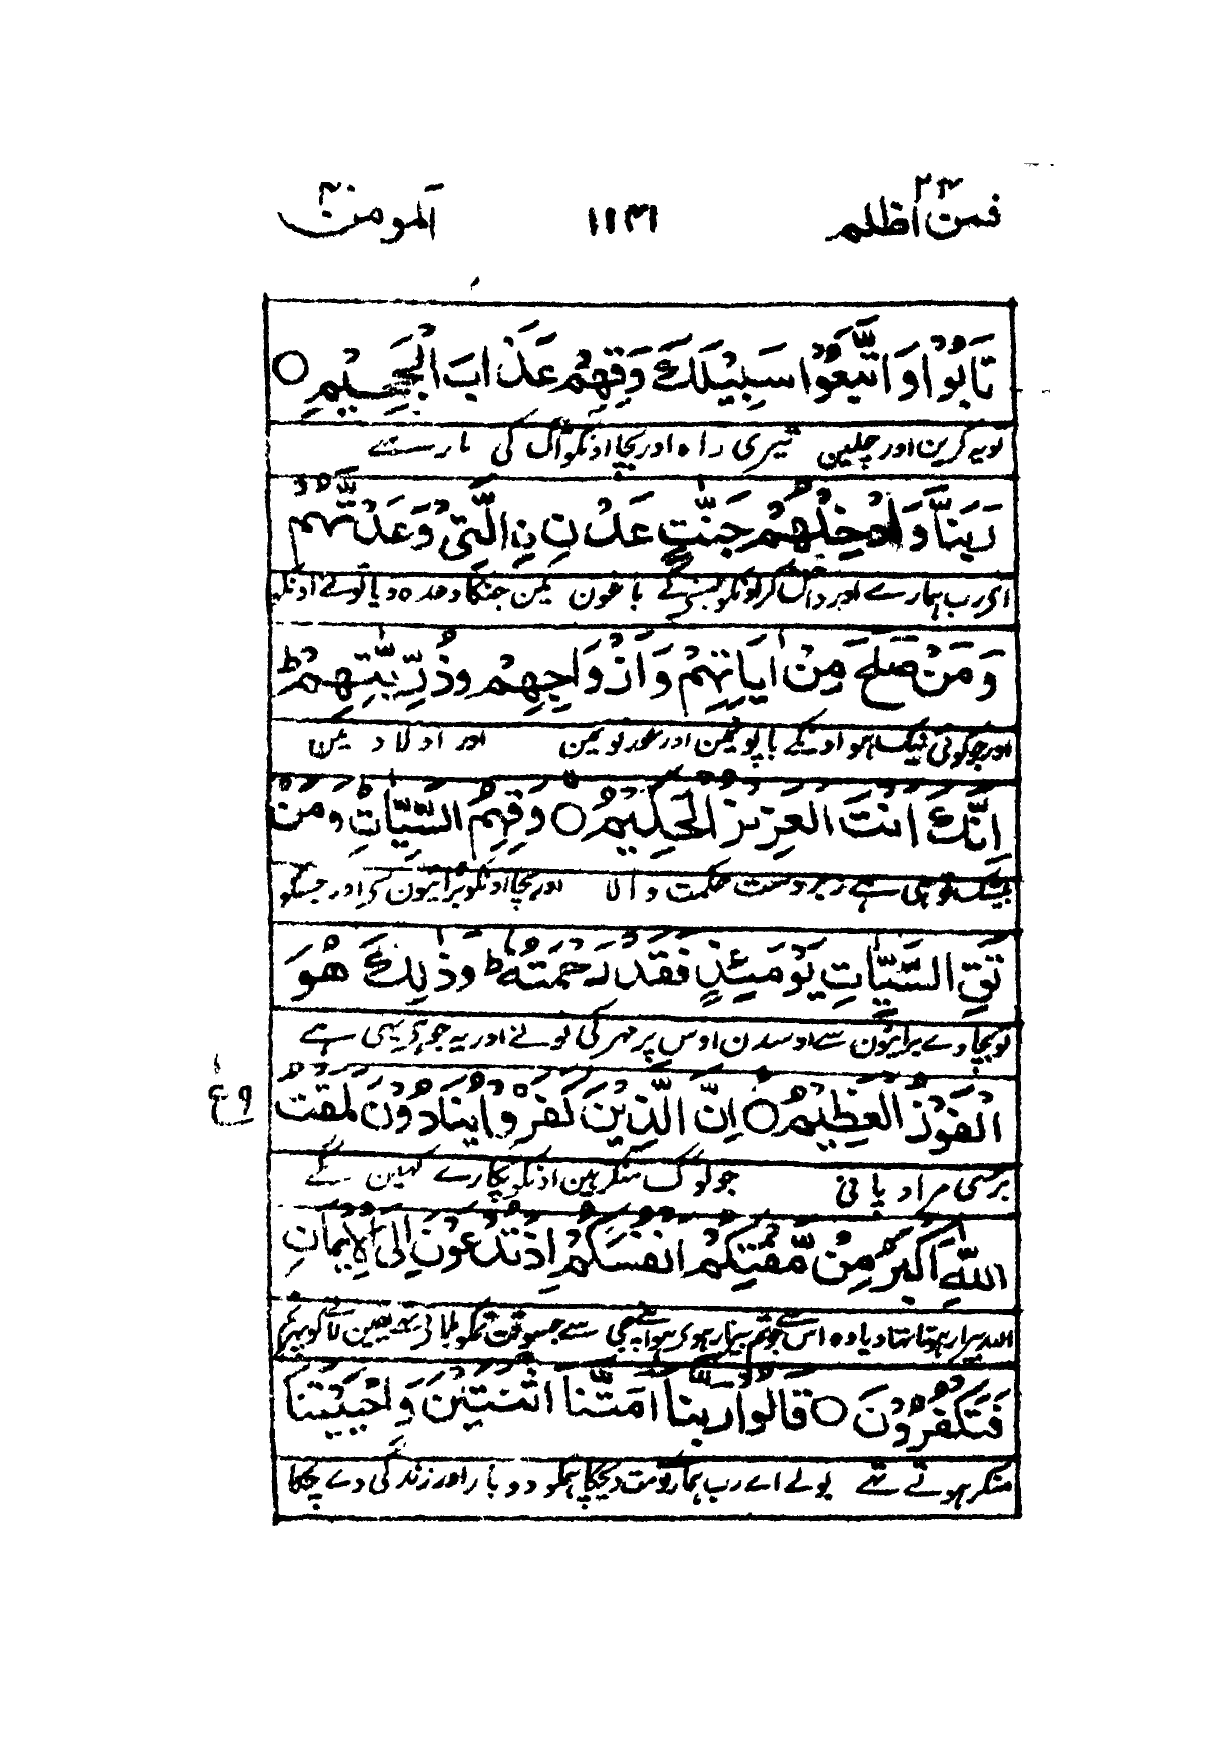 فمن اظلم ۲۴ ۱۱۳۱ المومن ۴۰
تَابُوْا وَاتَّبَعُوْا سَبِيْلَكَ وَقِهِمْ عَذَابَ الْجَحِيْمِ ○
توبہ کرین اور چلین تیری راہ اور بچا اونکو آگ کی مار سے
رَبَّنَا وَاَدْخِلْهُمْ جَنّٰتِ عَدْنِ نِ الَّتِيْ وَعَدْتَّهُمْ
ای رب ہمارے اور داخل کر اونکو بسنے کے باغون مین جنکا وعدہ دیا تونے اونکو
وَمَنْ صَلَحَ مِنْ اٰبَآئِهِمْ وَاَزْوَاجِهِمْ وَذُرِّيّٰتِهِمْ ط
اور جو کوئی نیک ہو اونکے باپونمین اور عورتونمین اور اولاد مین
اِنَّكَ اَنْتَ الْعَزِيْزُ الْحَكِيْمُ ○ وَقِهِمُ السَّيِّاٰتِ ط وَمَنْ
بیشک توہی ہے زبردست حکمت والا اور بچا اونکو برائیون سے اور جسکو
تَقِ السَّيِّاٰتِ يَوْمَئِذٍ فَقَدْ رَحِمْتَهٗ ط وَذٰلِكَ هُوَ
تو بچاوے برائیون سے اوسدن اوس پر مہر کی تونے اور یہ جو ہے یہی ہے
الْفَوْزُ الْعَظِيْمُ ○ اِنَّ الَّذِيْنَ كَفَرُوْا يُنَادَوْنَ لَمَقْتُ
بڑی مراد پانی جو لوگ منکر ہین اونکو پکارے کہین گے
اللّٰهِ اَكْبَرُ مِنْ مَّقْتِكُمْ اَنْفُسَكُمْ اِذْ تُدْعَوْنَ اِلَى الْاِيْمَانِ
اللہ بیزار ہوتا تہا زیادہ اس سے جو تم بیزار ہوے ہو اپنے جی سے جسوقت تمکو بلاتے تھے یقین لانے کو پھر تم
فَتَكْفُرُوْنَ ○ قَالُوْا رَبَّنَا اَمَتَّنَا اثْنَتَيْنِ وَاَحْيَيْتَنَا
منکر ہوتے تھے بولے اے رب ہمارے تو موت دیچکا ہمکو دو بار اور زندگی دے چکا